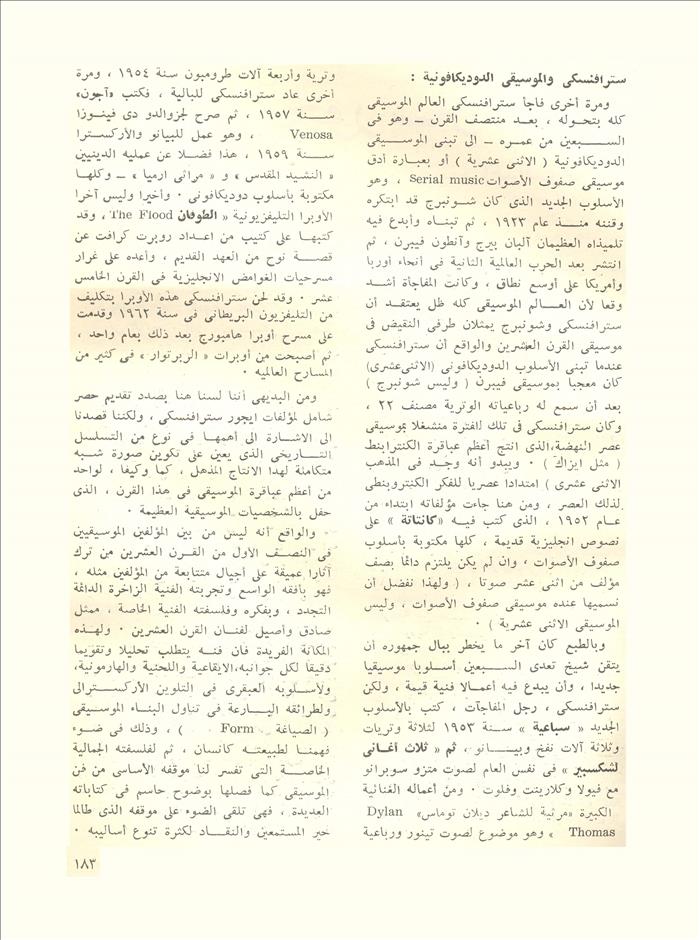 سترافنسكى والموسيقى الدوديكافونية :
ومرة أخرى فاجأ سترافنسكى العالم الموسيقى
كله بتحوله ، بعد منتصف القرن ـ وهو فى
السـبعين من عمـره ـ الى تبنى الموسـيقى
الدوديكافونية ( الاثنى عشرية ) أو بعبارة أدق
موسيقى صفوف الأصوات Serial music ، وهو
الأسلوب الجديد الذى كان شونبرج قد ابتكره
وقننه منـذ عام ١٩٢٣ ، ثم تبناه وأبدع فيه
تلميذاه العظيمان ألبان بيرج وآنطون فيبرن ، ثم
انتشر بعد الحرب العالمية الثانية فى أنحاء أوربا
وأمريكا على أوسع نطاق ، وكانت المفاجأة أشـد
وقعا لأن العـالم الموسيقى كله ظل يعتقـد أن
سترافنسكى وشونبرج يمثلان طرفى النقيض فى
موسيقى القرن العشرين والواقع أن سترافنسكى
عندما تبنى الأسلوب الدوديكافونى (الاثنى‌عشرى)
كان معجبا بموسيقى فيبرن ( وليس شونبرج )
بعد أن سمع له رباعياته الوترية مصنف ٢٢ ،
وكان سترافنسكى فى تلك للفترة منشغلا بموسيقى
عصر النهضة،الذى انتج أعظم عباقرة الكنترابنط
( مثل ايزاك ) . ويبدو أنه وجـد فى المذهب
الاثنى عشرى ) امتدادا عصريا للفكر الكنتروبنطى
لذلك العصر ، ومن هنا جاءت مؤلفاته ابتداء من
عـام ١٩٥٢ ، الذى كتب فيـه «كانتاتة» على
نصوص انجليزية قديمة ، كلها مكتوبة بأسلوب
صفوف الأصوات ، وان لم يكن يلتزم دائما بصف
مؤلف من اثنى عشر صوتا ، ( ولهذا نفضل أن
نسميها عنده موسيقى صفوف الأصوات ، وليس
الموسيقى الاثنى عشرية ) .
وبالطبع كان آخر ما يخطر ببال جمهوره أن
يتقن شيخ تعدى السـبعين أسلوبا موسيقيا
جديدا ، وأن يبدع فيه أعمـالا فنية قيمة ، ولكن
سترافنسكى ، رجل المفاجآت ، كتب بالأسلوب
الجديد « سباعية » سـنة ١٩٥٣ لثلاثة وتريات
وثلاثة آلات نفخ وبيـانو ، ثم « ثلاث أغانى
لشكسبير » فى نفس العام لصوت متزو سوبرانو
مع فيولا وكلارينت وفلوت . ومن أعماله الغنائية
الكبيرة «مرثية للشاعر ديلان توماس» Dylan
Thomas » وهو موضوع لصوت تينور ورباعية
وترية وأربعة آلات طرومبون سنة ١٩٥٤ ، ومرة
أخرى عاد سترافنسكى للبالية ، فكتب «آجون»
سـنة ١٩٥٧ ، ثم صرح لجزوالدو دى فينـوزا
Venosa ، وهو عمل للبيانو والأركسـترا
سـنة ١٩٥٩ ، هذا فضلا عن عمليه الدينيين
« النشيد المقدس » و « مراثى ارميا » ـ وكلها
مكتوبة بأسلوب دوديكافونى . وأخيرا وليس آخرا
الأوبرا التليفزيونية « الطوفان The Flood ، وقد
كتبهـا على كتيب من اعـداد روبرت كرافت عن
قصـة نوح من العهد القديم ، وأعده على غرار
مسرحيات الغوامض الانجليزية فى القرن الخامس
عشر . وقد لحن سترافنسكى هذه الأوبرا بتكليف
من التليفزيون البريطانى فى سنة ١٩٦٢ وقدمت
على مسرح أوبرا هامبورج بعد ذلك بعام واحد ،
ثم أصبحت من أوبرات « الربرتوار » فى كثير من
المسارح العالميه .
ومن البديهى أننا لسنا هنا بصدد تقديم حصر
شامل لمؤلفات ايجور سترافنسكى ، ولكننا قصدنا
الى الاشـارة الى أهمهـا فى نوع من التسلسل
التـاريخى الذى يعين على تكوين صورة شـبه
متكاملة لهدا الانتاج المذهل ، كما وكيفا ، لواحد
من أعظم عباقرة الموسيقى فى هذا القرن ، الذى
حفل بالشخصيات الموسيقية العظيمة .
والواقع أنه ليس من بين المؤلفين الموسيقيين
فى النصف الاول من القـرن العشرين من ترك
آثارا عميقة على أجيال متتابعة من المؤلفين مثله ،
فهو بأفقه الواسع وتجربته الفنية الزاخرة الدائمة
التجدد ، وبفكره وفلسفته الفنية الخاصة ، ممثل
صادق وأصيل لفنـان القرن العشرين . ولهـذه
المكانة الفريدة فان فنـه يتطلب تحليلا وتقويما
دقيقا لكل جوانبه،الايقاعية واللحنية والهارمونية،
ولأسـلوبه العبقرى فى التلوين الأركسـترالى
ولطرائقه البـارعة فى تناول البنـاء الموسـيقى
( الصياغة Form ) ، وذلك فى ضـوء
فهمنـا لطبيعتـه كانسان ، ثم لفلسفته الجمالية
الخاصـة التى تفسر لنا موقفه الأساسى من فن
الموسيقى كما فصلها بوضوح حاسم فى كتاباته
العديدة ، فهى تلقى الضوء على موقفه الذى طالما
حير المستمعين والنقـاد لكثرة تنوع أساليبه .
١٨٣